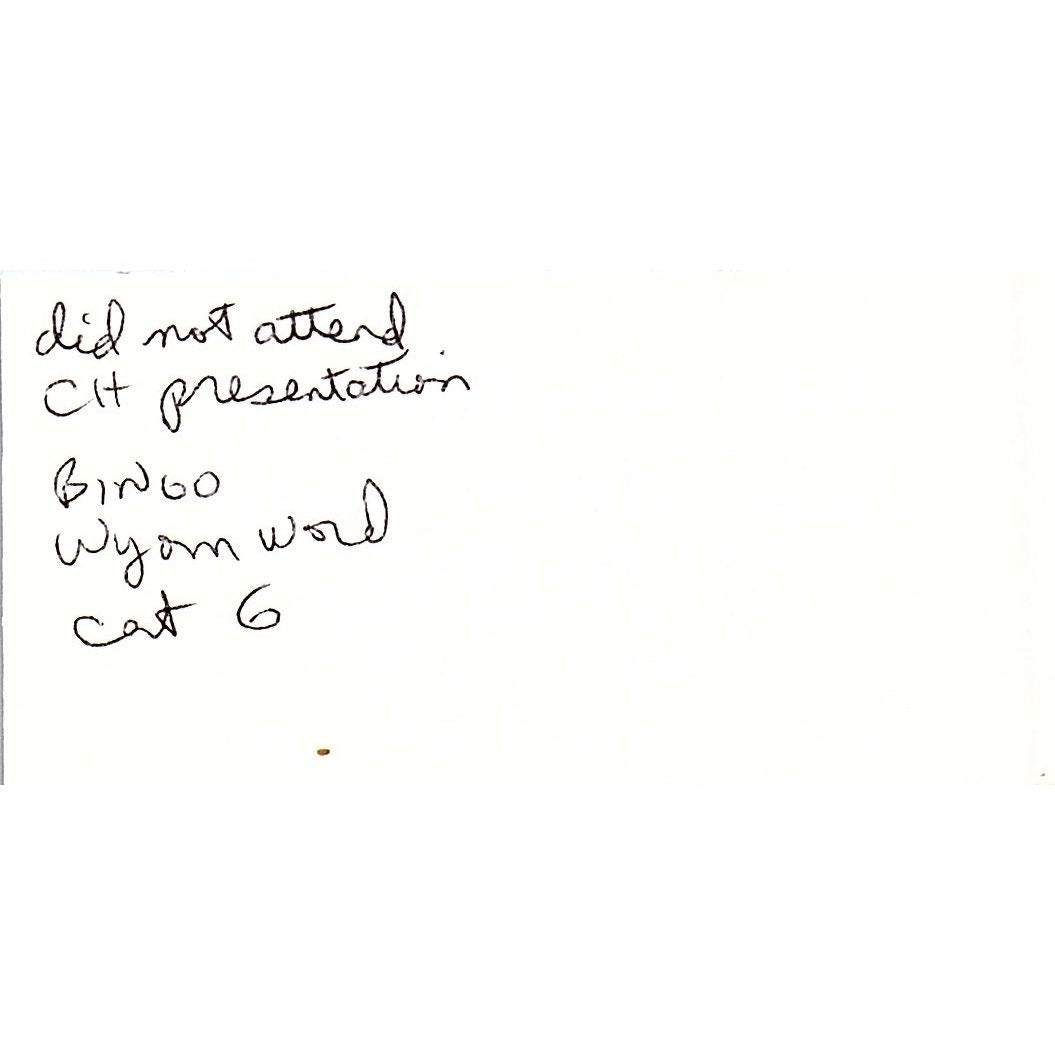 did not attend
CH presentation
BINGO
Wyom Word
cat 6